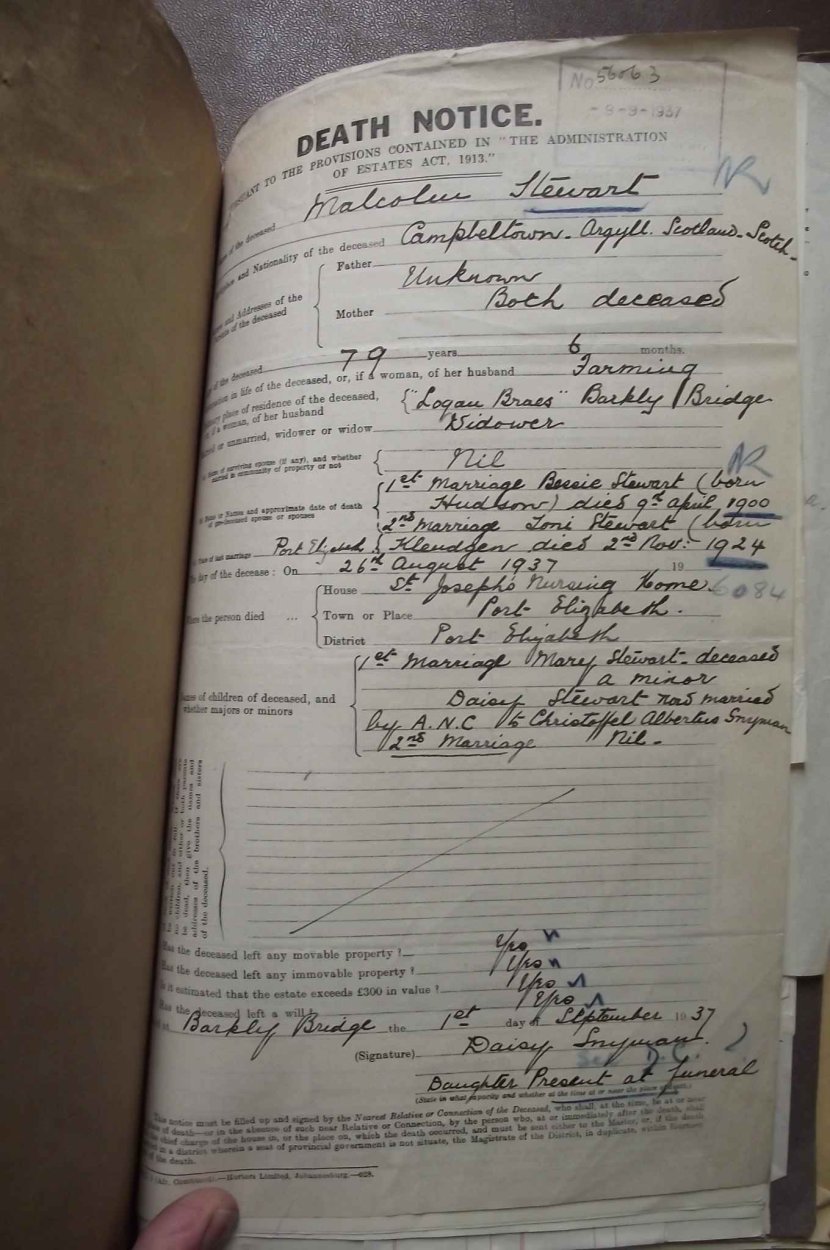 No 56063
-9-9-1937
DEATH NOTICE.
TO THE PROVISIONS CONTAINED IN "THE ADMINISTRATION
OF ESTATES ACT, 1913."
of the deceased Malcolm Stewart
and Nationality of the deceased Campbeltown - Argyll. Scotland - Scotch -
and Addresses of the
of the deceased
Father Unknown
Mother Both deceased
of the deceased 79 years 6 months.
in life of the deceased, or, if a woman, of her husband Farming
place of residence of the deceased,
a woman, of her husband
"Logan Braes" Barkly Bridge
or unmarried, widower or widow Widower
of surviving spouse (if any), and whether
married in community of property or not
Nil
or Names and approximate date of death
of pre-deceased spouse or spouses
1st Marriage Bessie Stewart (born
Hudson) died 9th April 1900
2nd Marriage Toni Stewart (born
of last marriage Port Elizabeth Kleudgen died 2nd Nov: 1924
day of the decease: On 26th August 1937 19
House St Joseph's Nursing Home.
6084
the person died ... Town or Place Port Elizabeth.
District Port Elizabeth
of children of deceased, and
whether majors or minors
1st Marriage Mary Stewart - deceased
a minor
Daisy Stewart now married
by A.N.C to Christoffel Albertus Snyman
2nd Marriage Nil -
be dead, then give the names and
addresses of the brothers and sisters
of the deceased.
Has the deceased left any movable property? Yes
Has the deceased left any immovable property? Yes
Is it estimated that the estate exceeds £300 in value? Yes
Has the deceased left a will? Yes
at Barkly Bridge the 1st day of September 1937
(Signature) Daisy Snyman.
Daughter Present at funeral
(State in what capacity and whether at the time at or near the place of death.)
notice must be filled up and signed by the Nearest Relative or Connection of the Deceased, who shall, at the time, be at or near
of death—or in the absence of such near Relative or Connection, by the person who, at or immediately after the death, shall
chief charge of the house in, or the place on, which the death occurred, and must be sent either to the Master, or, if the death
in a district wherein a seat of provincial government is not situate, the Magistrate of the District, in duplicate, within fourteen
of the death.
Limited, Johannesburg.—628.